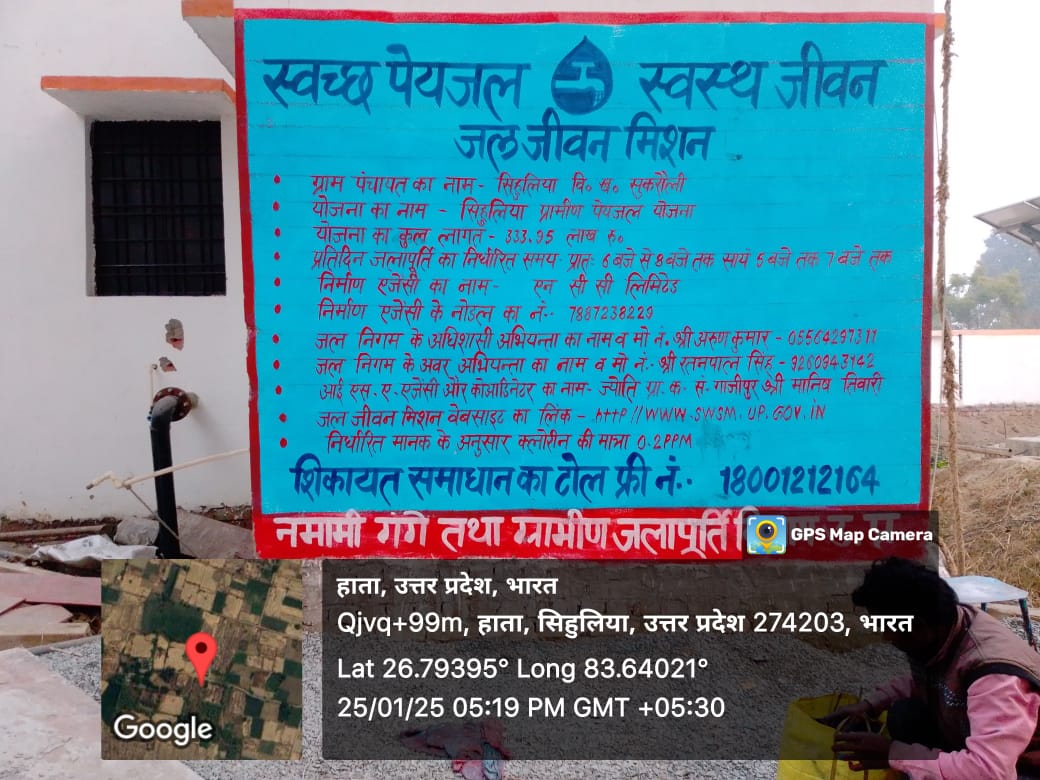 स्वच्छ पेयजल स्वस्थ जीवन
जल जीवन मिशन
• ग्राम पंचायत का नाम- सिहुलिया वि० ख० सुकरौली
• योजना का नाम - सिहुलिया ग्रामीण पेयजल योजना
• योजना का कुल लागत - 333.95 लाख रु०
• प्रतिदिन जलापूर्ति का निर्धारित समय- प्रातः 6 बजे से 8 बजे तक सायं 5 बजे तक 7 बजे तक
• निर्माण एजेंसी का नाम- एन सी सी लिमिटेड
• निर्माण एजेंसी के नोडल का नं.. 7887238229
• जल निगम के अधिशासी अभियन्ता का नाम व मो नं. श्री अरुण कुमार - 05564297311
• जल निगम के अवर अभियन्ता का नाम व मो नं.. श्री रतनपाल सिंह - 9260943142
• आई एस. ए. एजेंसी और कोआर्डिनेटर का नाम- ज्योति ग्रा. क. सं. गाजीपुर श्री मानिष तिवारी
• जल जीवन मिशन वेबसाइट का लिंक - HTTP//WWW.SWSM.UP.GOV.IN
• निर्धारित मानक के अनुसार क्लोरीन की मात्रा 0.2PPM
शिकायत समाधान का टोल फ्री नं.. 18001212164
नमामी गंगे तथा ग्रामीण जलापूर्ति
GPS Map Camera
हाता, उत्तर प्रदेश, भारत
Qjvq+99m, हाता, सिहुलिया, उत्तर प्रदेश 274203, भारत
Lat 26.79395° Long 83.64021°
25/01/25 05:19 PM GMT +05:30
Google